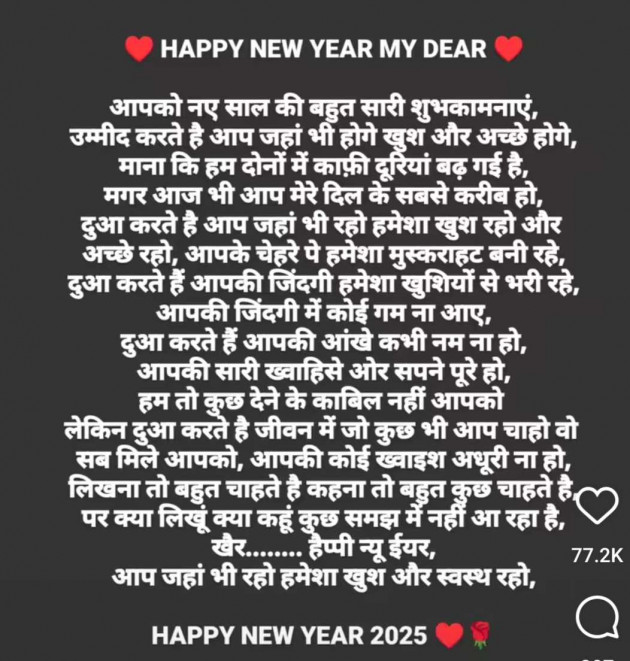 ❤️ HAPPY NEW YEAR MY DEAR ❤️
आपको नए साल की बहुत सारी शुभकामनाएं,
उम्मीद करते है आप जहां भी होगे खुश और अच्छे होगे,
माना कि हम दोनों में काफ़ी दूरियां बढ़ गई है,
मगर आज भी आप मेरे दिल के सबसे करीब हो,
दुआ करते है आप जहां भी रहो हमेशा खुश रहो और
अच्छे रहो, आपके चेहरे पे हमेशा मुस्कराहट बनी रहे,
दुआ करते हैं आपकी जिंदगी हमेशा खुशियों से भरी रहे,
आपकी जिंदगी में कोई गम ना आए,
दुआ करते हैं आपकी आंखे कभी नम ना हो,
आपकी सारी ख्वाहिसे ओर सपने पूरे हो,
हम तो कुछ देने के काबिल नहीं आपको
लेकिन दुआ करते है जीवन में जो कुछ भी आप चाहो वो
सब मिले आपको, आपकी कोई ख्वाइश अधूरी ना हो,
लिखना तो बहुत चाहते है कहना तो बहुत कुछ चाहते है,
पर क्या लिखूं क्या कहूं कुछ समझ में नहीं आ रहा है,
77.2K
खैर........ हैप्पी न्यू ईयर,
आप जहां भी रहो हमेशा खुश और स्वस्थ रहो,
HAPPY NEW YEAR 2025 ❤️🌹